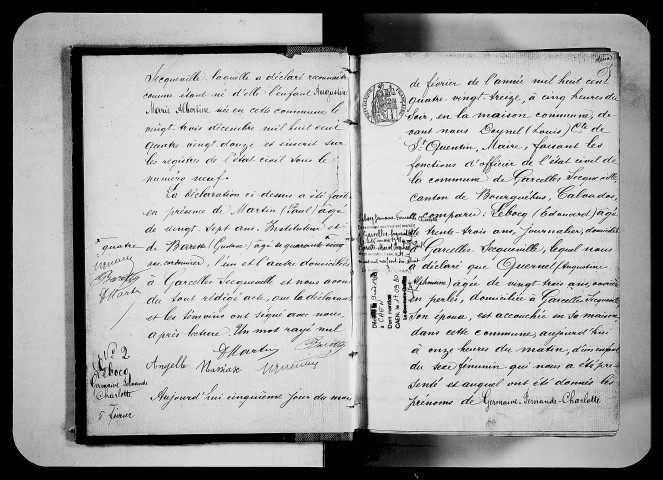 Secqueville, laquelle a déclaré reconnaître
comme étant né d'elle l'enfant Augustin
Marie Albertine né en cette commune le
vingt trois décembre mil huit cent
quatre vingt douze et inscrit sur
les registres de l'état civil sous le
numéro neuf.
La déclaration ci-dessus a été faite
en présence de Martin (Paul) âgé
de vingt sept ans, Instituteur et
de Barette (Gustave) âgé de quarante cinq
ans, cordonnier, l'un et l'autre domiciliés
à Garcelles Secqueville et nous avons
du tout rédigé acte, que la déclarante
et les témoins ont signé avec nous,
après lecture. Un mot rayé nul
PMartin Barette
Angelle
Aujourd'hui cinquième jour du mois
quatre
Barette
PMartin
N° 2
Lebocq
Germaine Fernande
Charlotte
5 février
de février de l'année mil huit cent
quatre-vingt-treize, à cinq heures du
soir, en la maison commune, de
vant nous Doynel (Louis) Cte de
St Quentin, Maire, faisant les
fonctions d'officier de l'état civil de
la commune de Garcelles Secqueville
canton de Bourguébus, Calvados,
a comparu: Lebocq (Edouard) âgé
de trente-trois ans, journalier, domicilié
à Garcelles Secqueville, lequel nous
a déclaré que Quernel (Augustine
Alphonsine) âgée de vingt trois ans, ouvrière
en perles, domiciliée à Garcelles Secqueville
son épouse, est accouchée en sa maison
dans cette commune, aujourd'hui
à onze heures du matin, d'un enfant
du sexe féminin qui nous a été pré-
senté et auquel ont été donnés les
prénoms de Germaine-Fernande-Charlotte
CAEN